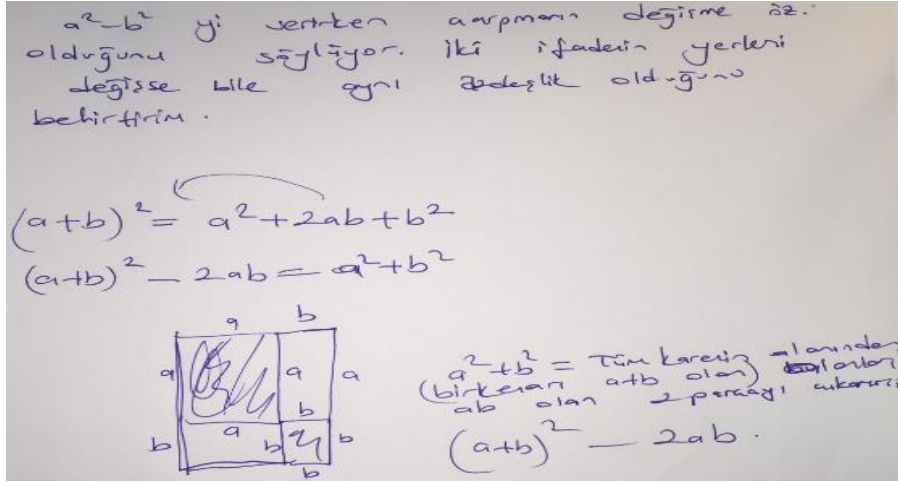 a²-b² yi verirken çarpmanın değişme öz.
olduğunu söylüyor. iki ifadenin yerleri
değişse bile aynı özdeşlik olduğunu
belirtirim.
(a+b)² = a²+2ab+b²
(a+b)² - 2ab = a²+b²
a b
a a a
b
a
b b b
b
a²+b² = Tüm karenin alanından
(bir kenarı a+b olan) alanları
ab olan 2 parçayı çıkarırız
(a+b)² - 2ab.